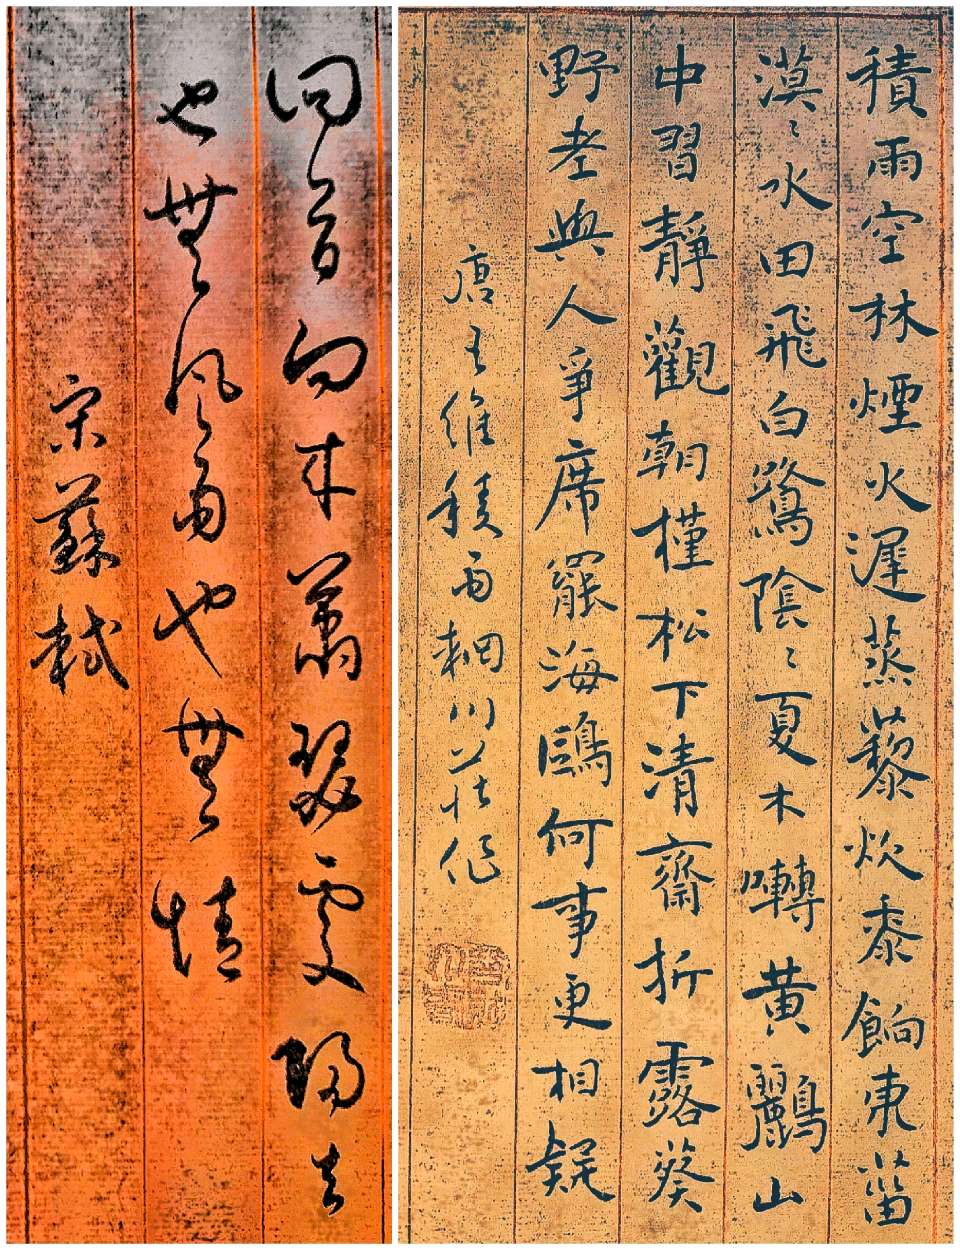 積雨空林煙火遲蒸藜炊黍餉東菑
漠〻水田飛白鷺陰〻夏木囀黃鸝山
中習靜觀朝槿松下清齋折露葵
野老與人爭席罷海鷗何事更相疑
唐王維積雨輞川莊作
回首向來蕭瑟處歸去
也無風雨也無情
宋蘇軾